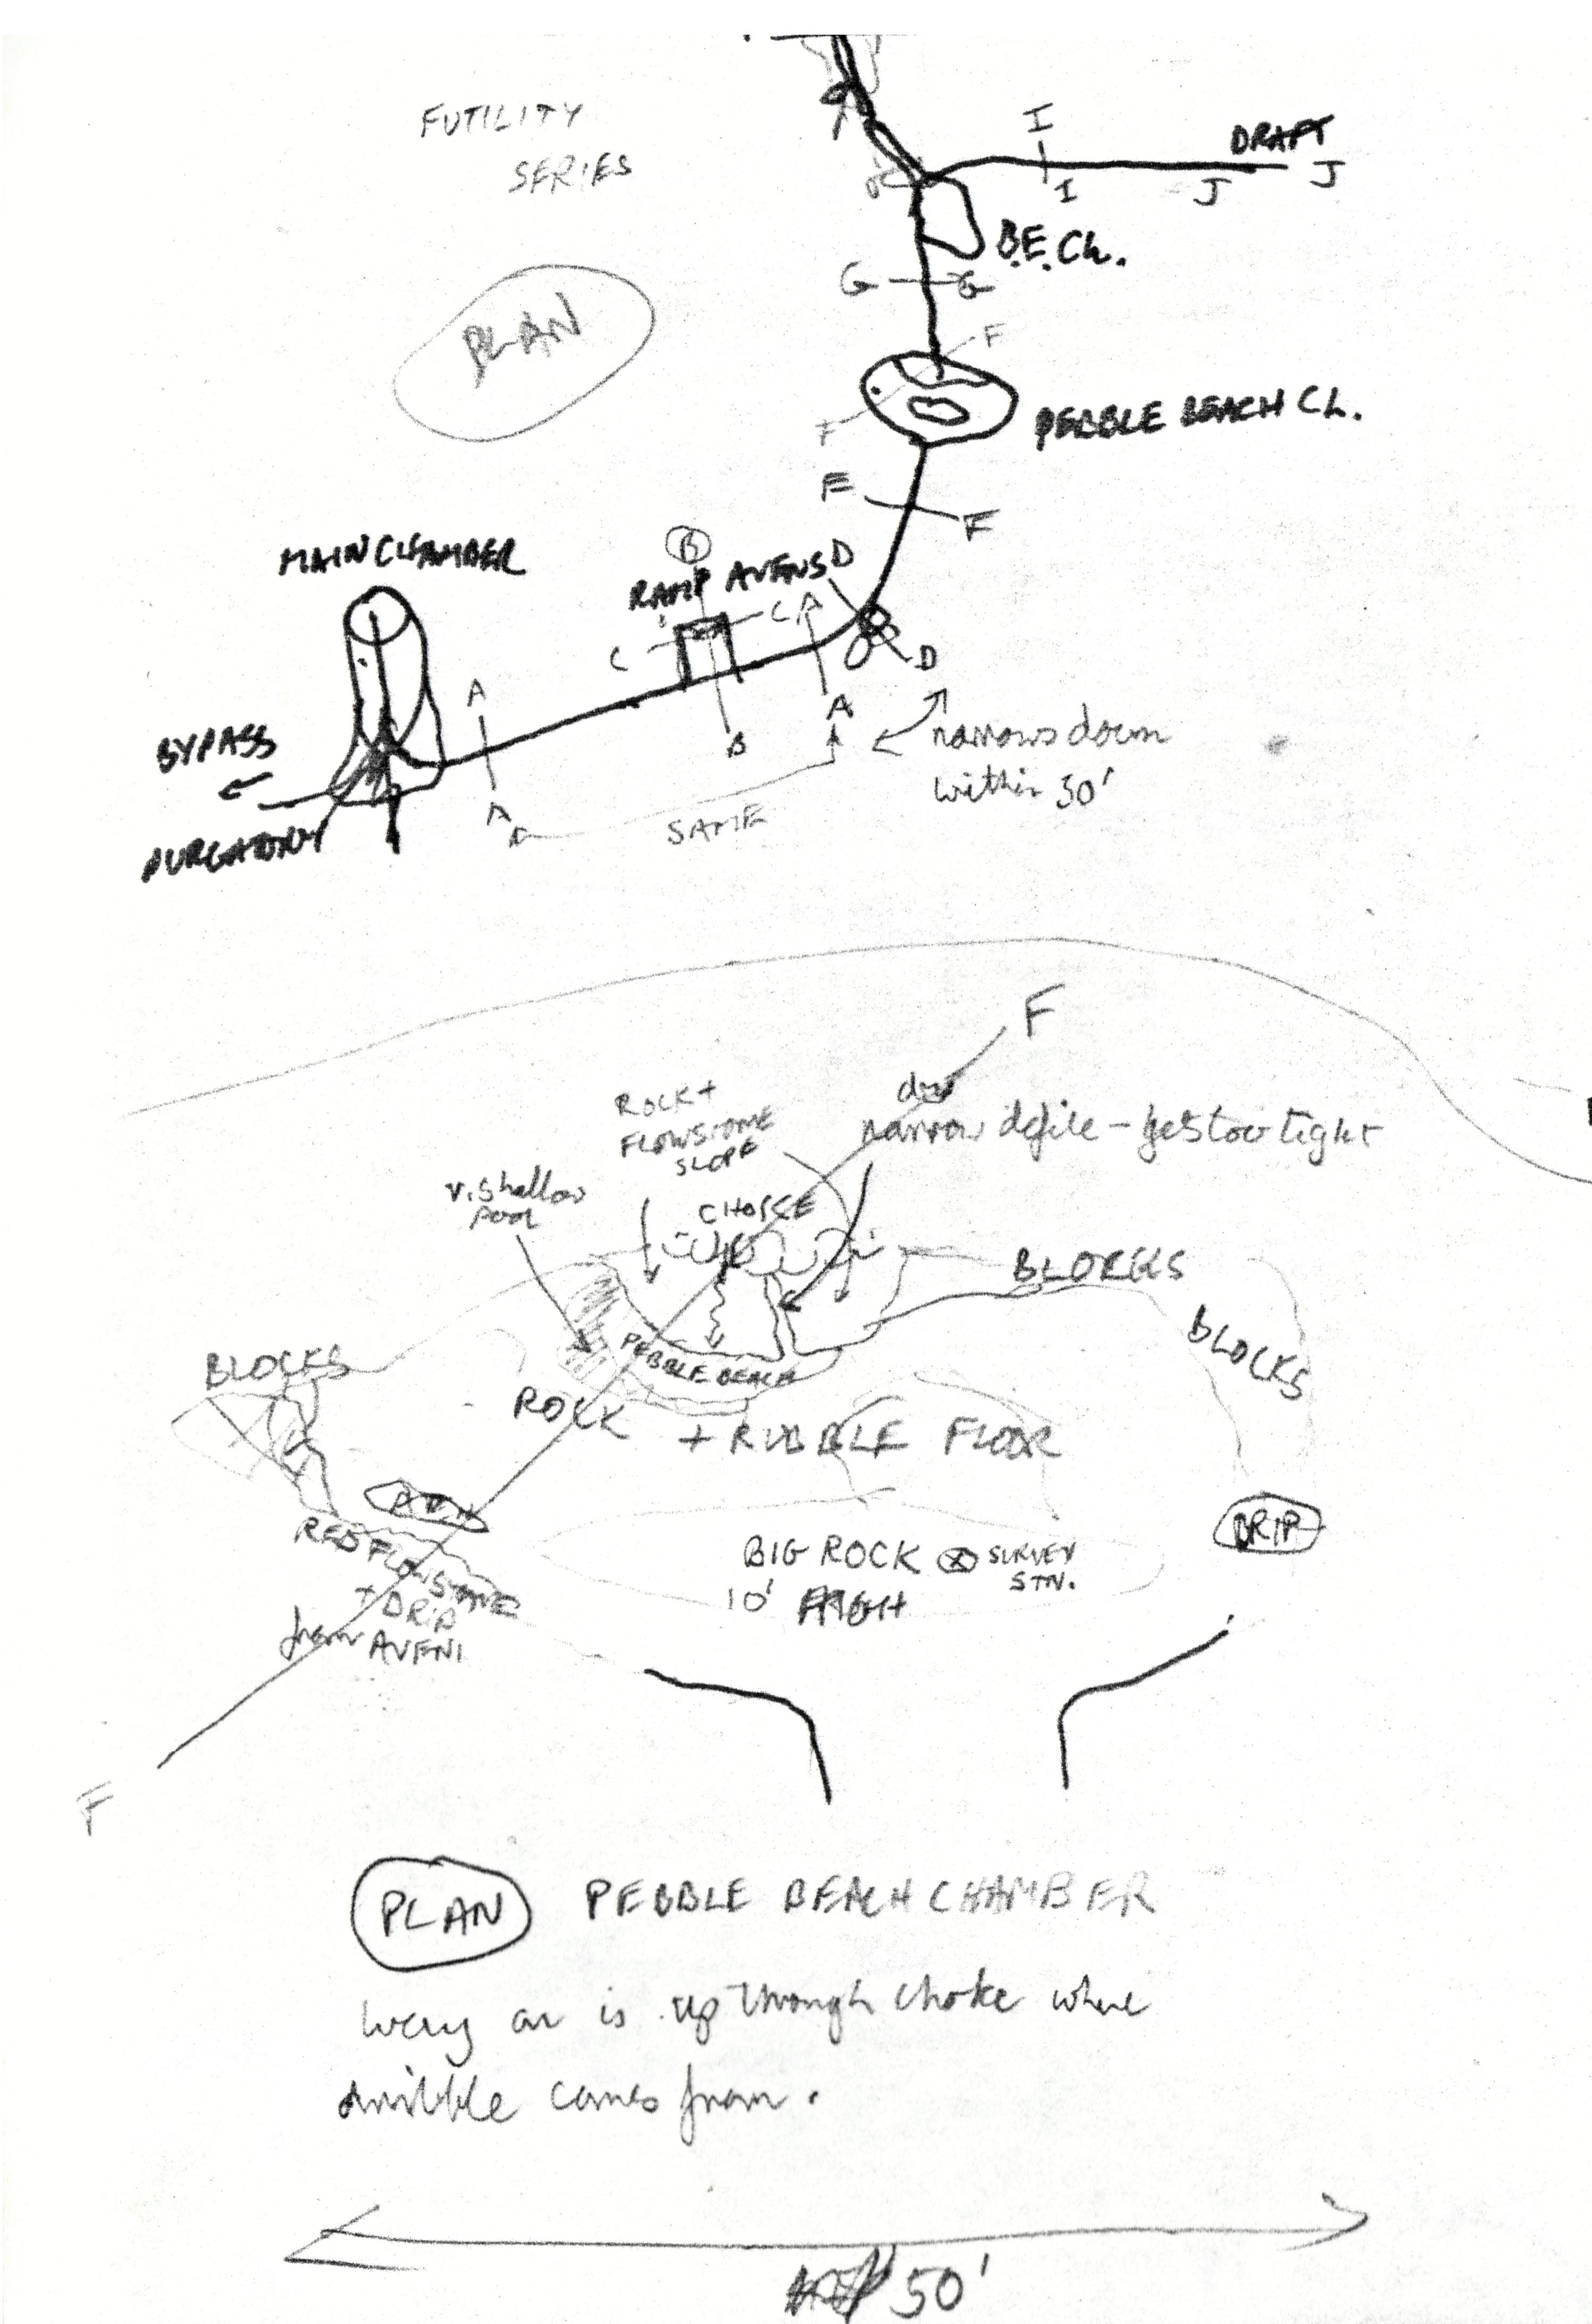 FUTILITY
SERIES
PLAN
I
DRAFT
I
J
J
B.E. Ch.
G
G
F
F
PEBBLE BEACH CH.
E
F
MAIN CHAMBER
B
RAMP AVENS
D
C
C
A
A
D
A
B
A
BYPASS
PURGATORY
SAME
narrows down
within 30'
F
ROCK +
FLOWSTONE
SLOPE
narrow defile - gets too tight
v. shallow
pool
CHOKE
BLOCKS
BLOCKS
BLOCKS
PEBBLE BEACH
ROCK
+ RUBBLE FLOOR
AVEN
RED FLOWSTONE
+ DRIP
from AVEN
BIG ROCK
10' HIGH
SURVEY
STN.
DRIP
F
PLAN
PEBBLE BEACH CHAMBER
Way on is up through choke where
dribble comes from.
50'